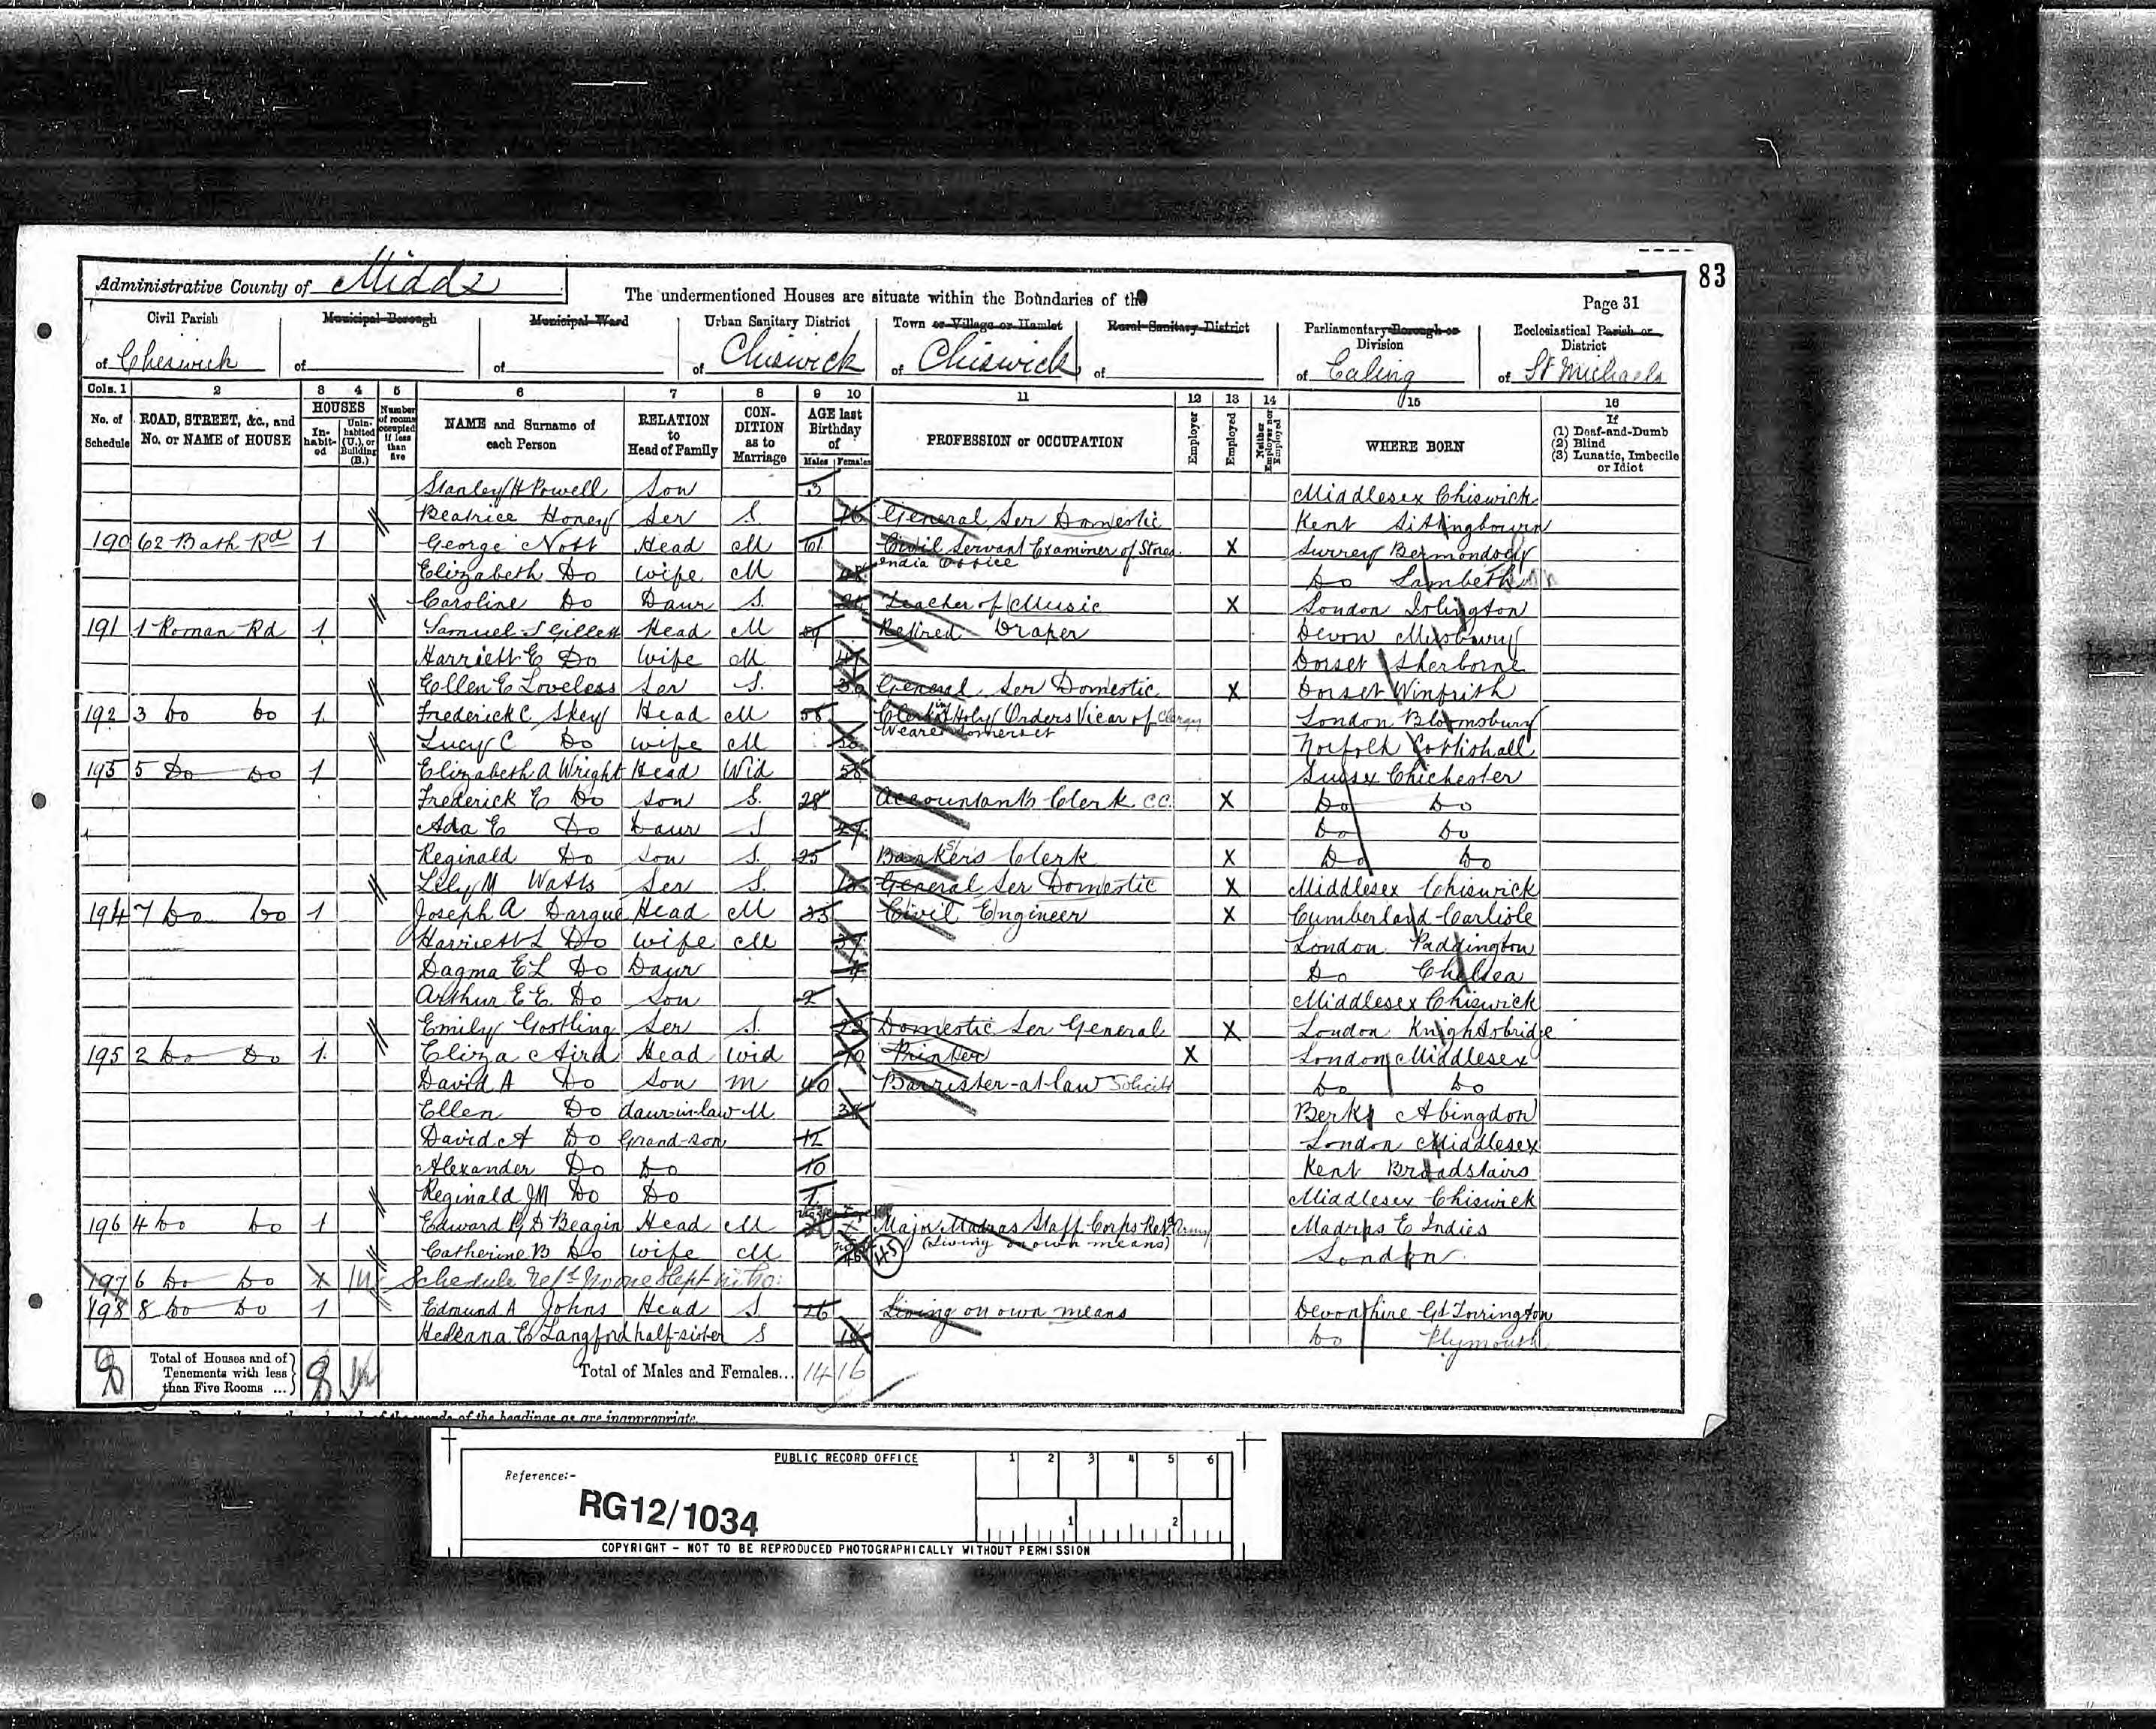 83
Administrative County of Middx
The undermentioned Houses are situate within the Boundaries of the
Page 31
Civil Parish Municipal Borough Municipal Ward Urban Sanitary District Town or Village or Hamlet Rural Sanitary District Parliamentary Borough or Division Ecclesiastical Parish or District
of Cheswick of of of Chiswick of Chiswick of of Ealing of St Michaels
Cols. 1 2 3 4 5 6 7 8 9 10 11 12 13 14 15 16
No. of Schedule ROAD, STREET, &c., and No. or NAME of HOUSE HOUSES In-habit-ed Unin-habited (U.), or Building (B.) Number of rooms occupied if less than five NAME and Surname of each Person RELATION to Head of Family CON-DITION as to Marriage AGE last Birthday of Males Females PROFESSION or OCCUPATION Employer Employed Neither Employer nor Employed WHERE BORN If (1) Deaf-and-Dumb (2) Blind (3) Lunatic, Imbecile or Idiot
Stanley H Powell Son 3 Middlesex Chiswick
Beatrice Honey Ser S. 16 General Ser Domestic Kent Sittingbourn
190 62 Bath Rd 1 George Nott Head M 61 Civil Servant Examiner of Stores X Surrey Bermondsey
India Office
Elizabeth Do wife M Do Lambeth
Caroline Do Daur S. Teacher of Music X London Islington
191 1 Roman Rd 1 Samuel S Gillett Head M 49 Retired Draper Devon
Harriett E Do Wife M Dorset Sherborne
Ellen E Loveless Ser S. General Ser Domestic X Dorset Winfrith
192 3 Do Do 1. Frederick C Skey Head M 58 Clerk in Holy Orders Vicar of Clergy London Bloomsbury
Weare Somerset
Lucy C Do wife M Norfolk Coltishall
193 5 Do Do 1 Elizabeth A Wright Head Wid 58 Sussex Chichester
Frederick E Do Son S. 28 Accountants Clerk CC X Do Do
Ada E Do Daur S 27 Do Do
Reginald Do Son S. 25 Bankers Clerk X Do Do
Lily M Watts Ser S. General Ser Domestic X Middlesex Chiswick
194 7 Do Do 1 Joseph A Dargue Head M 35 Civil Engineer X Cumberland Carlisle
Harriett L Do Wife M London Paddington
Dagma E L Do Daur 4 Do Chelsea
Arthur E E Do Son 2 Middlesex Chiswick
Emily Gostling Ser S. Domestic Ser General X London Knightsbridge
195 2 Do Do 1. Eliza Aird Head Wid 70 Printer X London Middlesex
David A Do Son M 40 Barrister-at-law Solicitr Do Do
Ellen Do daur-in-law M Berks Abingdon
David A Do Grand-son 12 London Middlesex
Alexander Do Do 10 Kent Broadstairs
Reginald J M Do Do 1 Middlesex Chiswick
196 4 Do Do 1 Edward Head M Major Madras Staff Corps Retd Army Madras E Indies
Catherine B Do wife M 45 (Living on own means) London
197 6 Do Do X Schedule
198 8 Do Do 1 Edmund A Johns Head S 26 Living on own means Devonshire Gt Torrington
Heleana E Langford half-sister S 18 Do Plymouth
8 Total of Houses and of Tenements with less than Five Rooms ... 8 Total of Males and Females... 14 16
PUBLIC RECORD OFFICE 1 2 3 4 5 6
Reference:-
RG12/1034
1 2
COPYRIGHT - NOT TO BE REPRODUCED PHOTOGRAPHICALLY WITHOUT PERMISSION